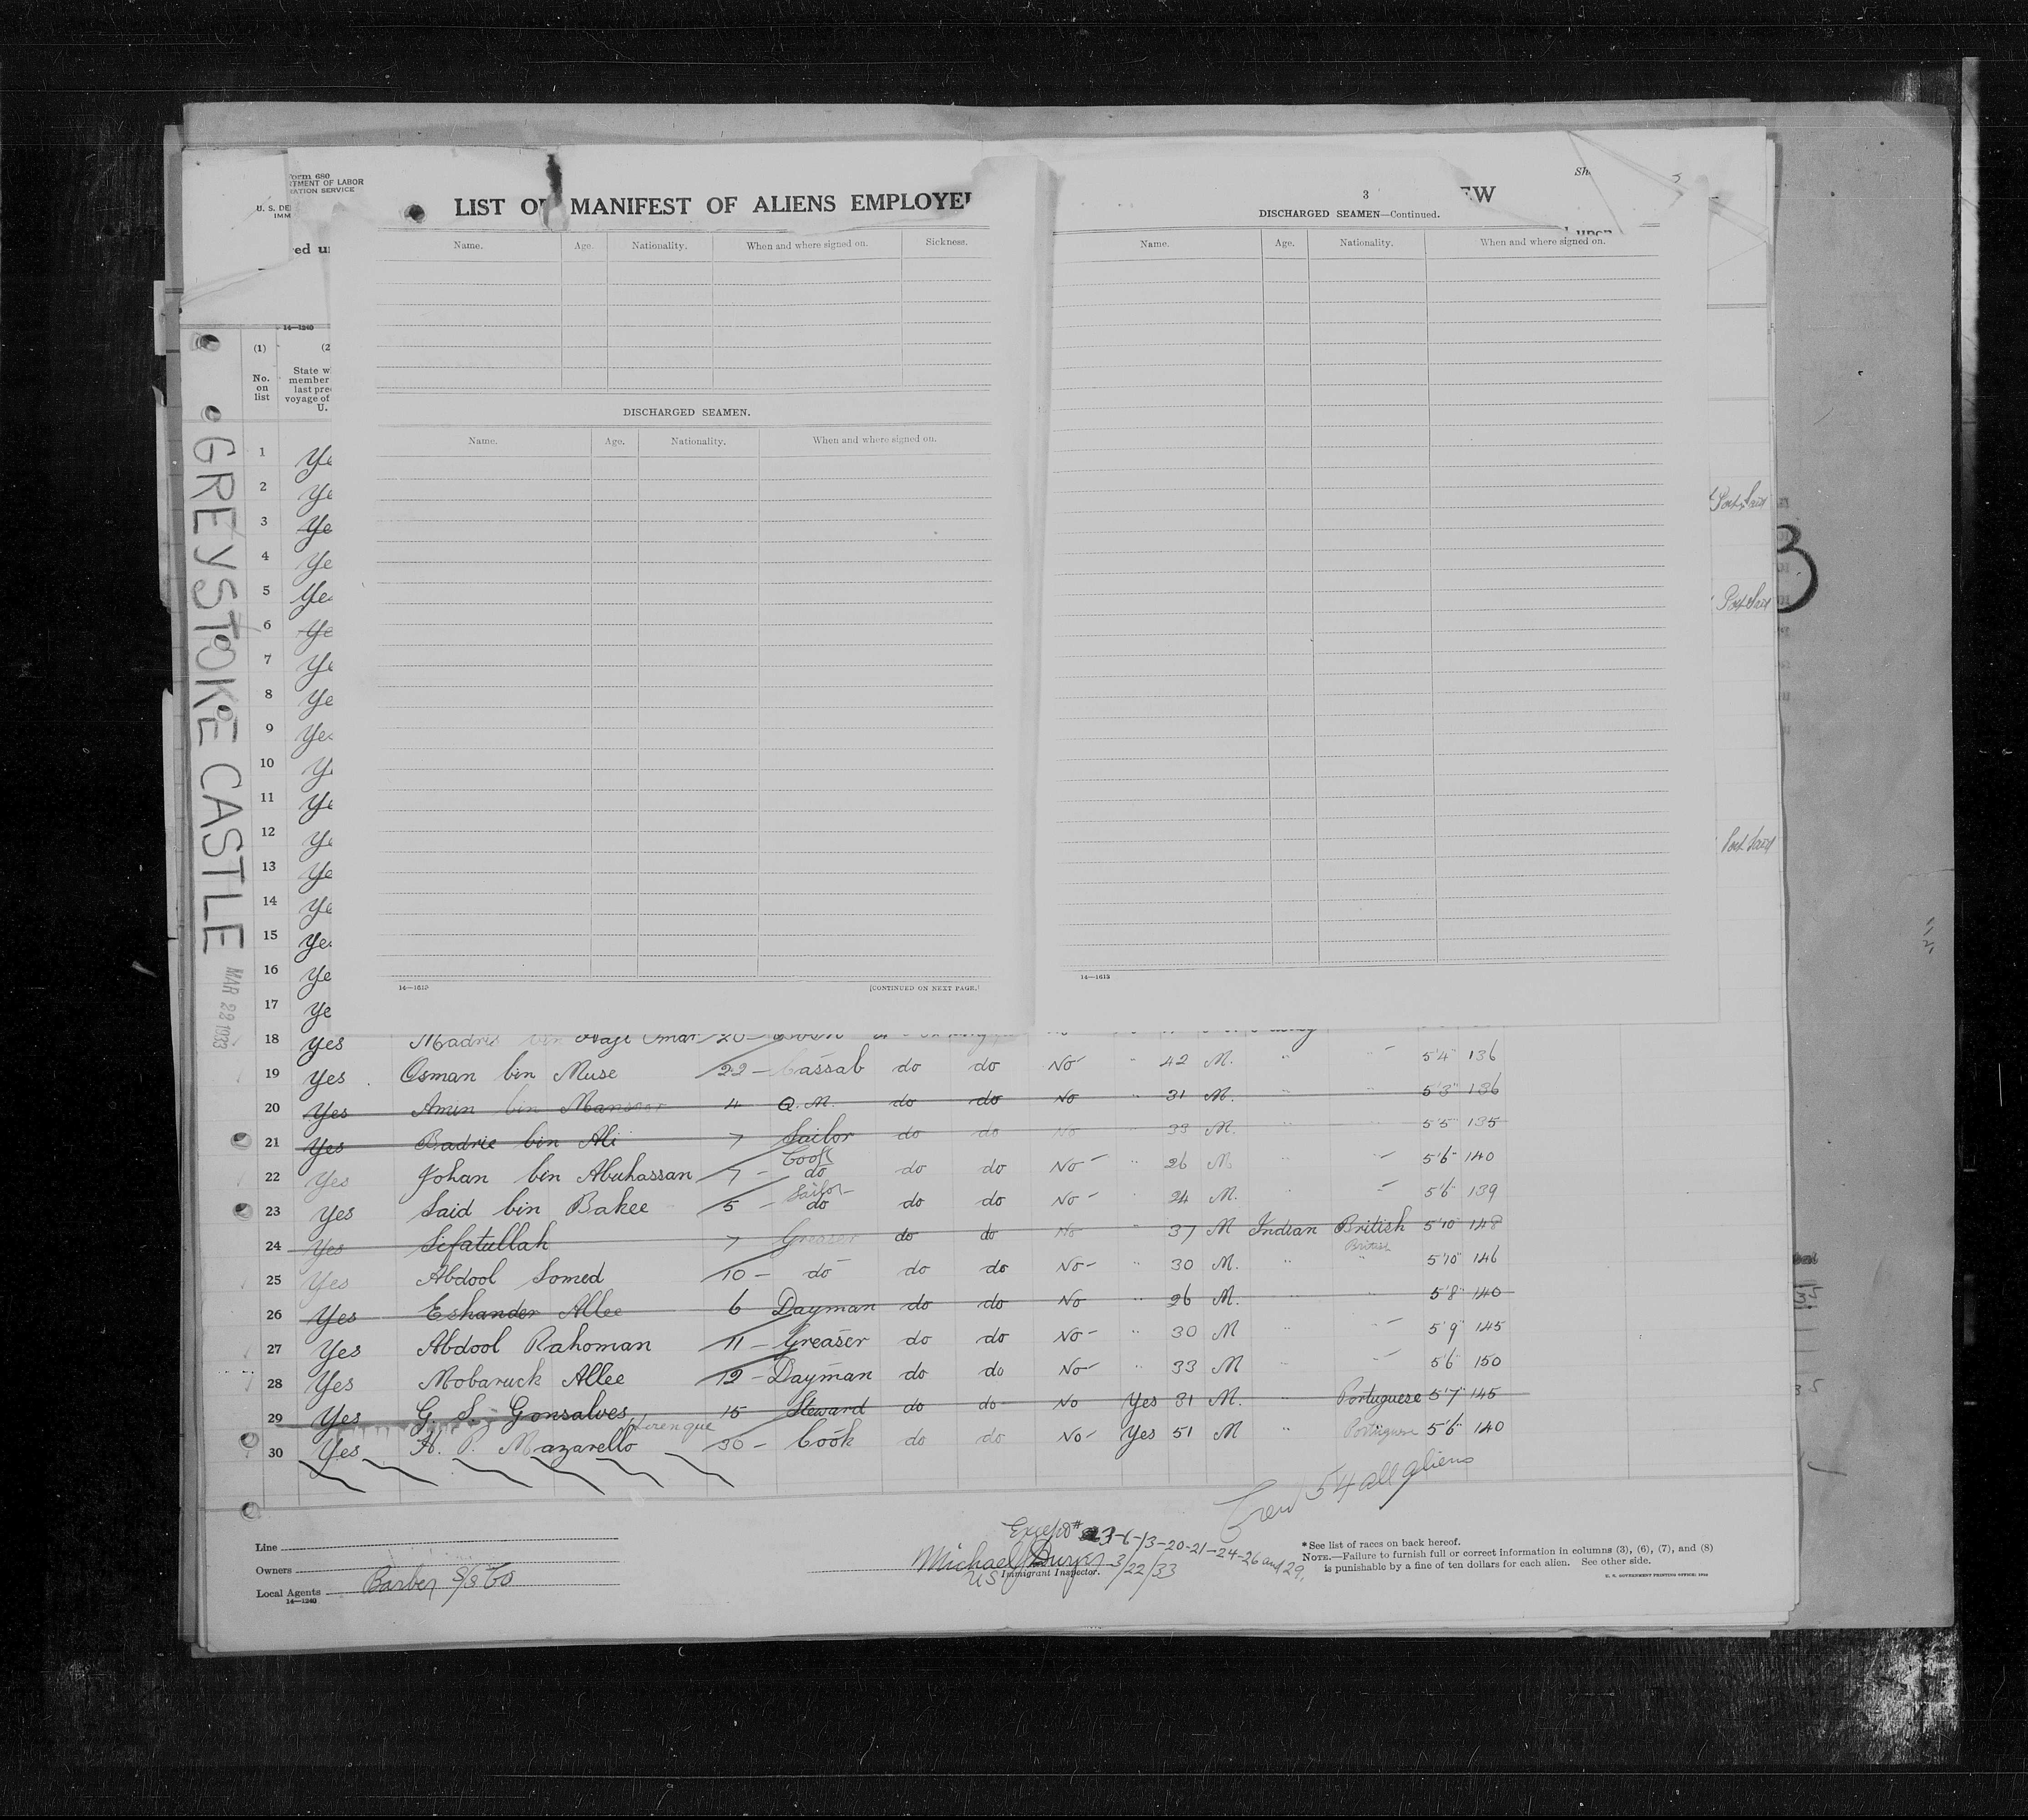 Form 680
U. S. DE
RTMENT OF LABOR
IMM
RATION SERVICE
LIST O MANIFEST OF ALIENS EMPLOYE
EW
Sh
ed u
upon
3
DISCHARGED SEAMEN—Continued.
Name. Age. Nationality. When and where signed on. Sickness.
Name. Age. Nationality. When and where signed on.
DISCHARGED SEAMEN.
Name. Age. Nationality. When and where signed on.
14—1240
(1) (2
No. on list
State w
member
last pre
voyage of
U.
GREYSTOKE CASTLE
MAR 22 1933
1 Ye
2 Ye
3 Ye
4 Ye
5 Yes
6 Ye
7 Ye
8 Ye
9 Yes
10 Y
11 Ye
12 Ye
13 Ye
14 Ye
15 Yes
16 Ye
17 Ye
Port Said
Port Said
Port Said
3
14—1613
[CONTINUED ON NEXT PAGE.]
14—1613
18 Yes Madris bin Haji Omar 20
19 Yes Osman bin Muse 22 – Cassab do do No " 42 M. " " 5'4" 136
20 Yes Amin bin Mansoor 4 Q.M. do do No " 31 M. " " 5'3" 136
21 Yes Badrie bin Ali 7 Sailor do do No " 33 M. " " 5'5" 135
Cook
22 Yes Johan bin Abuhassan 7 – do do do No " 26 M " " 5'6" 140
Sailor
23 Yes Said bin Bakee 5 – do do do No " 24 M. " " 5'6" 139
24 Yes Sifatullah 7 Greaser do do No " 37 M Indian British 5'10" 148
British
25 Yes Abdool Somed 10 – do do do No " 30 M. " " 5'10" 146
26 Yes Eshander Allee 6 Dayman do do No " 26 M. " " 5'8" 140
27 Yes Abdool Rahoman 11 – Greaser do do No " 30 M " " 5'9" 145
28 Yes Mobaruck Allee 12 – Dayman do do No " 33 M " " 5'6" 150
29 Yes G. S. Gonsalves 15 Steward do do No Yes 31 M. " Portuguese 5'7" 145
30 Yes H. P. Mazarello 30 – Cook do do No Yes 51 M " Portuguese 5'6" 140
Crew 54 all aliens
Except # 3-6-13-20-21-24-26 and 29.
Line
Owners
Local Agents Barber S/S Co
14—1240
Michael Dwyer 3/22/33
US Immigrant Inspector.
* See list of races on back hereof.
NOTE.—Failure to furnish full or correct information in columns (3), (6), (7), and (8)
is punishable by a fine of ten dollars for each alien. See other side.